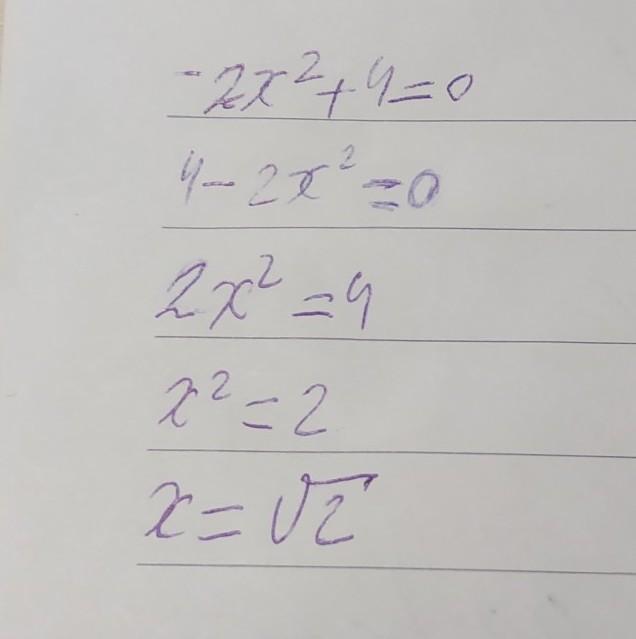 -2x²+4=0
4-2x²=0
2x²=4
x²=2
x=√2